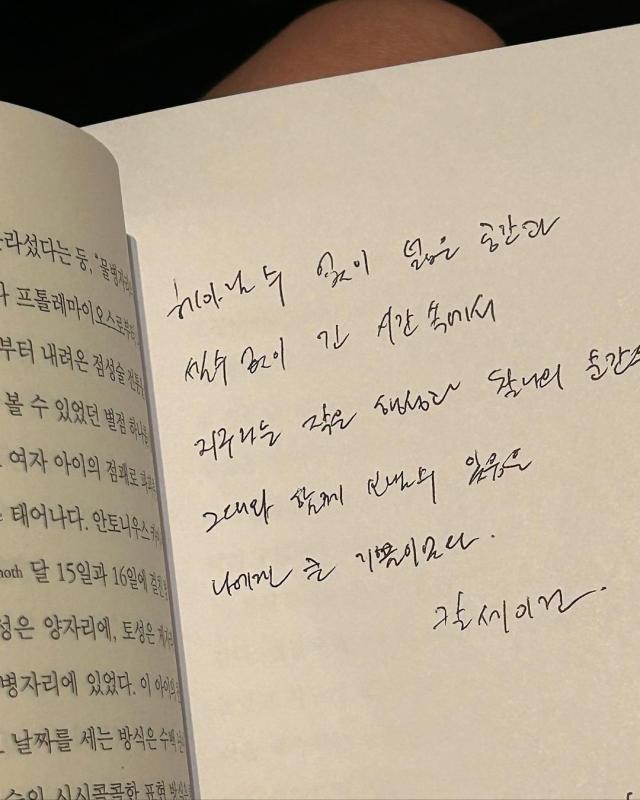 라섰다는 둥, "물병자리
프톨레마이오스로부터
부터 내려온 점성술 전통을
볼 수 있었던 별점 하나를
여자 아이의 점괘로
태어나다. 안토니우스
달 15일과 16일에
성은 양자리에, 토성은
병자리에 있었다. 이 아이의
날짜를 세는 방식은 수백
시시콜콜한 표현
헤아릴 수 없이 넓은 공간과
셀 수 없이 긴 시간 속에서
지구라는 작은 행성과 찰나의 순간을
그대와 함께 보낼 수 있음은
나에게 큰 기쁨이었다.
칼 세이건.